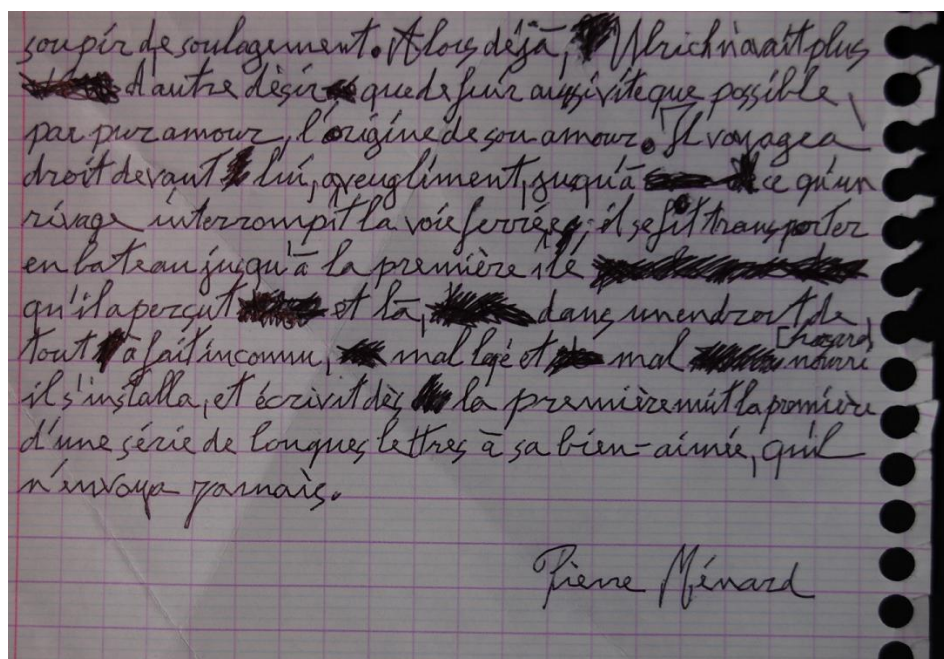 soupir de soulagement. Alors déjà, Ulrich n'avait plus
d'autre désir que de fuir aussi vite que possible,
par pur amour, l'origine de son amour. Il voyagea
droit devant lui, aveuglément, jusqu'à ce qu'un
rivage interrompit la voie ferrée; il se fit transporter
en bateau jusqu'à la première île
qu'il aperçut et là, dans un endroit de
hasard,
tout à fait inconnu, mal logé et mal nourri
il s'installa, et écrivit dès la première nuit la première
d'une série de longues lettres à sa bien-aimée, qu'il
n'envoya jamais.
Pierre Ménard